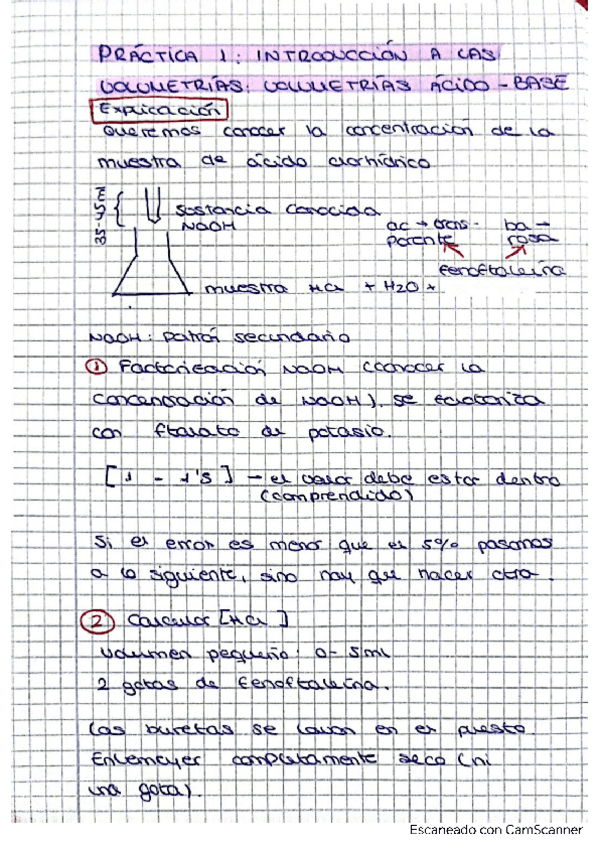 PRÁCTICA 1: INTRODUCCIÓN A LAS
VOLUMETRÍAS. VOLUMETRÍAS ÁCIDO - BASE
Explicación
Queremos conocer la concentración de la
muestra de ácido clorhídrico
35-45ml
sustancia conocida
NaOH
ac → trans-
parente
ba →
rosa
fenoftaleína
muestra HCl + H2O +
NaOH: patrón secundario
① Factorización NaOH (conocer la
concentración de NaOH). se factoriza
con ftalato de potasio.
[1 - 1'5] → el valor debe estar dentro
(comprendido)
Si el error es menor que el 5% pasamos
a lo siguiente, sino hay que hacer otra.
② Calcular [HCl]
Volumen pequeño: 0-5ml
2 gotas de fenoftaleína.
Las buretas se lavan en el puesto
Erlemeyer completamente seco (ni
una gota).
Escaneado con CamScanner